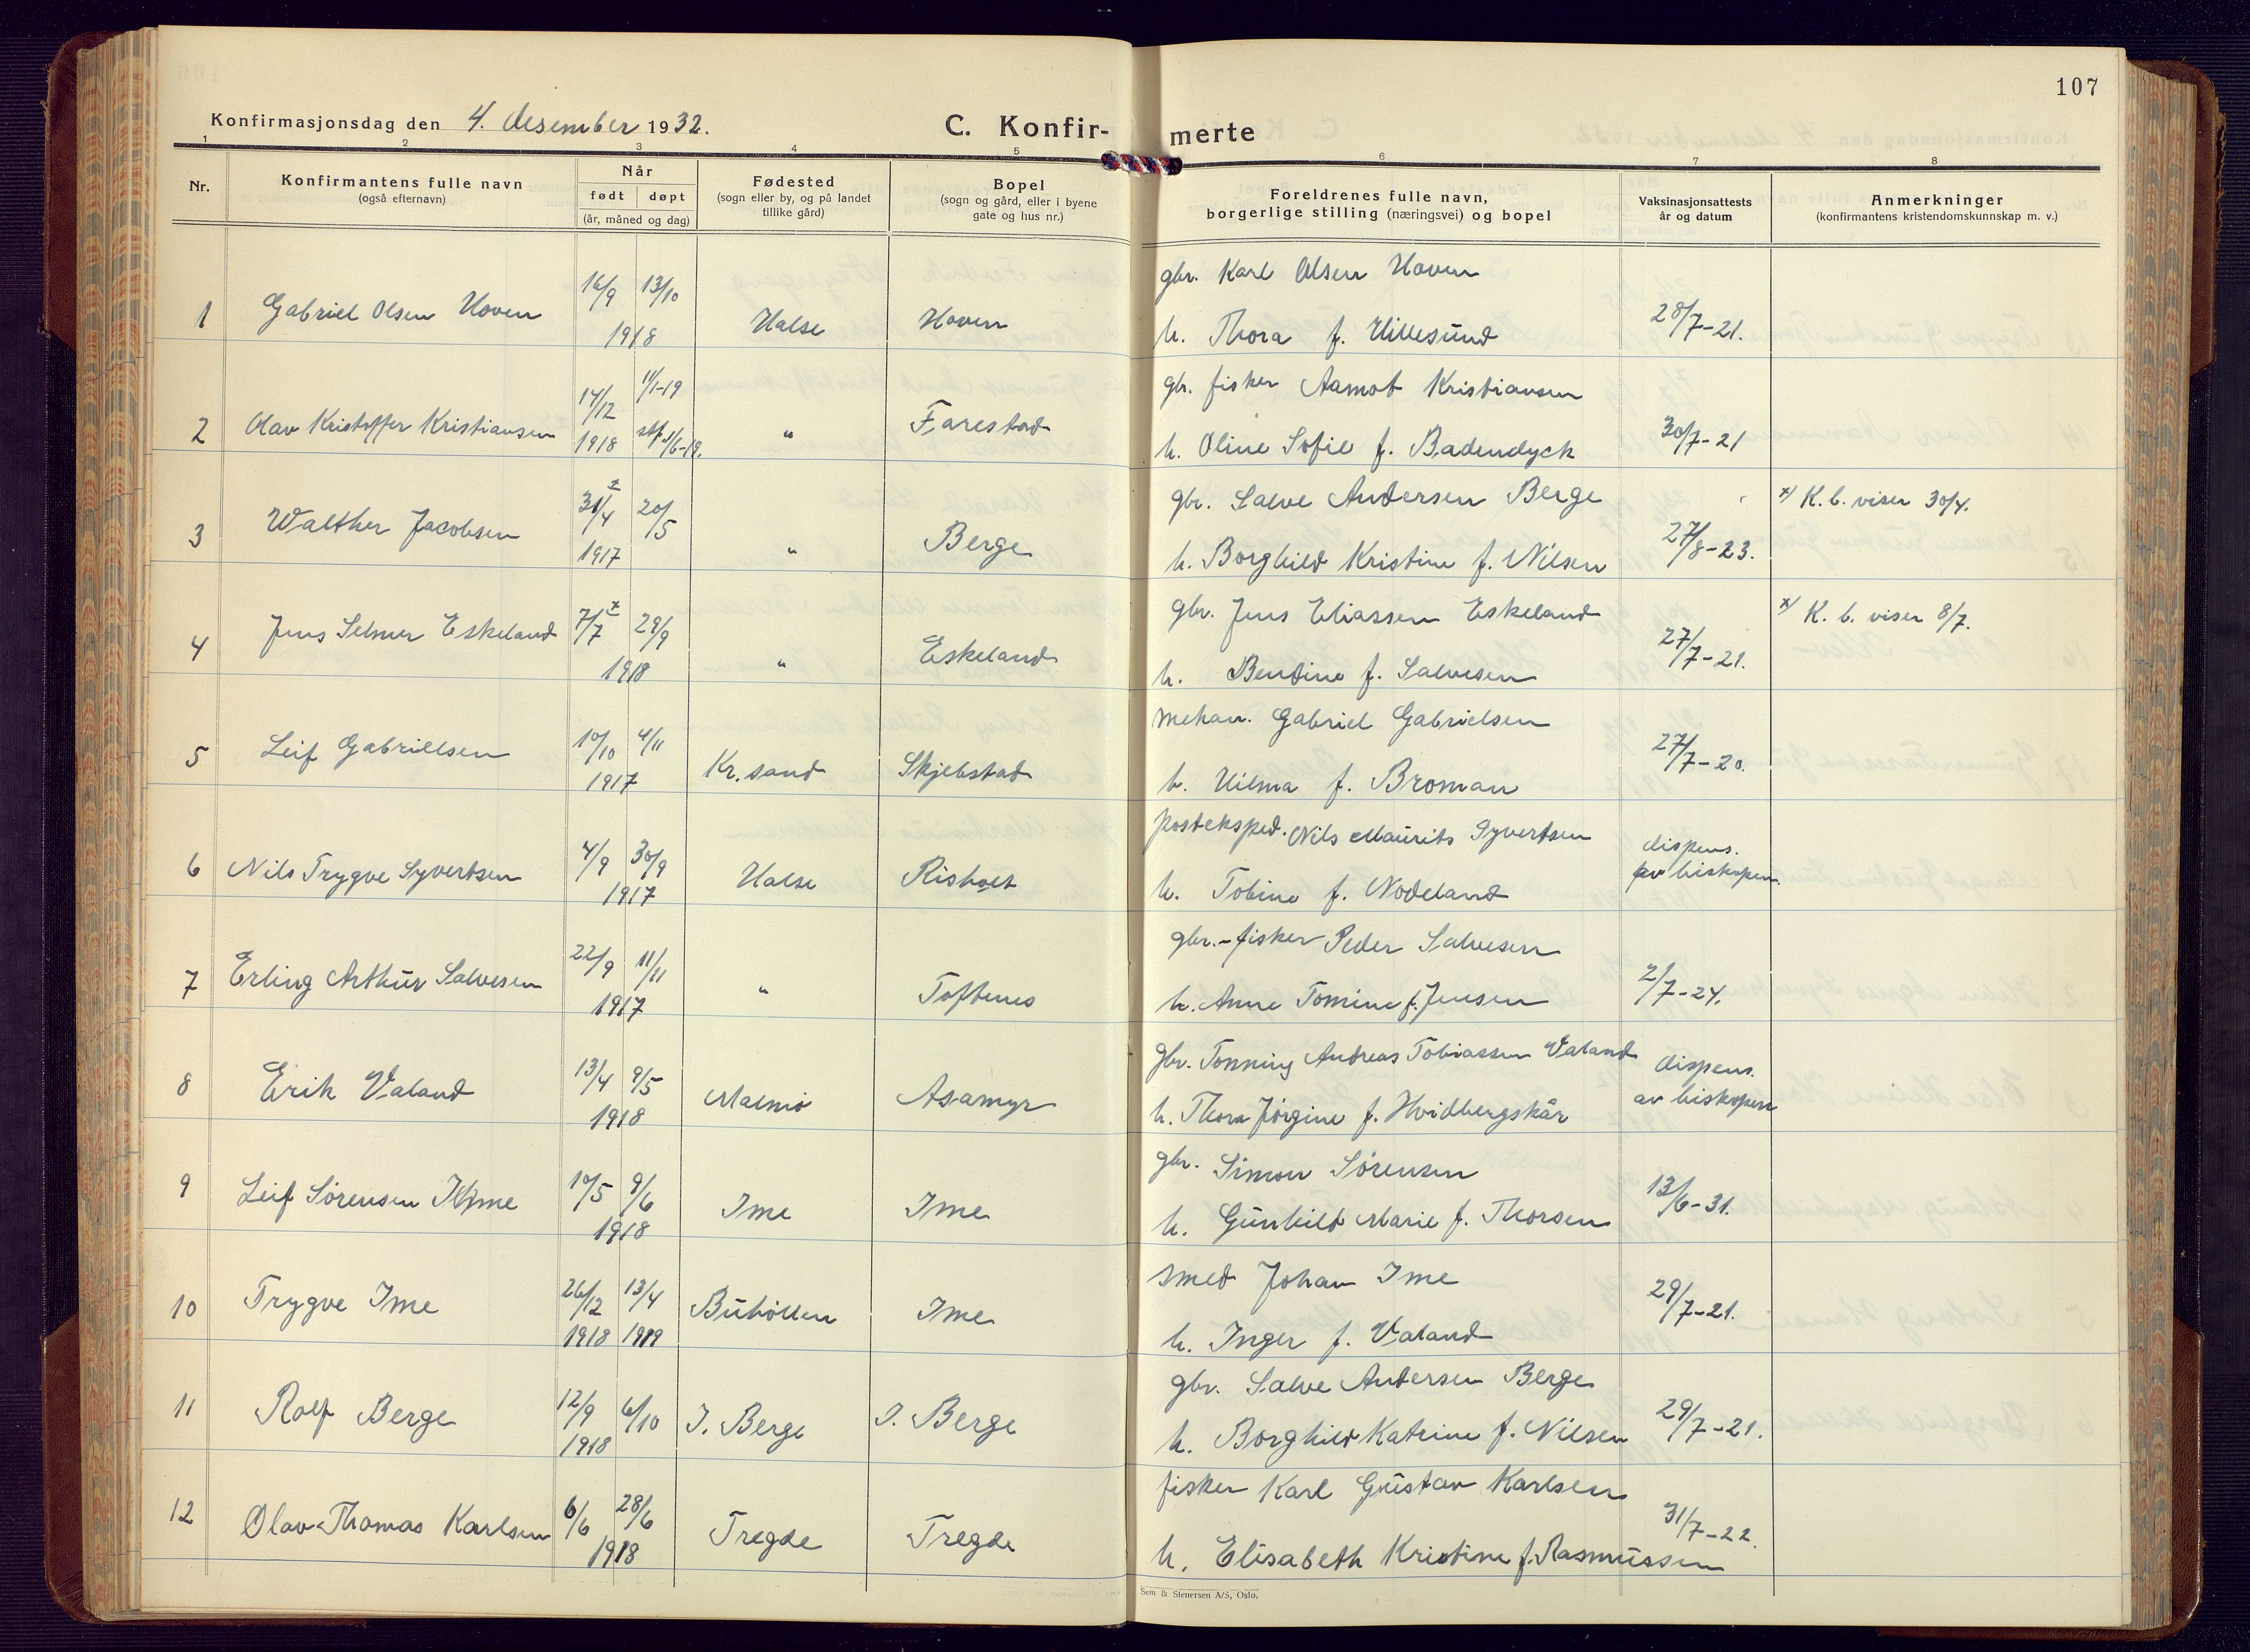 107
Konfirmasjonsdag den 4. desember 1932.
C. Konfir- merte
1 2 3 4 5 6 7 8
Nr.
Konfirmantens fulle navn
(også efternavn)
Når
født døpt
(år, måned og dag)
Fødested
(sogn eller by, og på landet
tillike gård)
Bopel
(sogn og gård, eller i byene
gate og hus nr.)
Foreldrenes fulle navn,
borgerlige stilling (næringsvei) og bopel
Vaksinasjonsattests
år og datum
Anmerkninger
(konfirmantens kristendomskunnskap m. v.)
gbr. Karl Olsen Hoven
1 Gabriel Olsen Hoven 16/9 13/10 1918 Halse Hoven
h. Thora f. Hillesund 28/7-21.
gbr. fisker Aamot Kristiansen
2 Olav Kristoffer Kristiansen 14/12 1918 11/1-19 stf. 1/6-19. " Farestad
h. Oline Sofie f. Badendyck 30/7-21
gbr. Salve Andersen Berge x) K.b. viser 30/4.
3 Walther Jacobsen 31/4 x 20/5 1917 " Berge
h. Borghild Kristine f. Nilsen 27/8-23.
gbr. Jens Eliassen Eskeland x) K. b. viser 8/7.
4 Jens Selmer Eskeland 7/7 x 29/9 1918 " Eskeland
h. Bendine f. Salvesen 27/7-21.
mekan. Gabriel Gabrielsen
5 Leif Gabrielsen 10/10 4/11 1917 Kr.sand Skjebstad
h. Hilma f. Broman 27/7-20.
posteksped. Nils Maurits Syvertsen
6 Nils Trygve Syvertsen 4/9 30/9 1917 Halse Risholt
h. Tobine f. Nodeland dispens. av biskopen.
gbr.-fisker Peder Salvesen
7 Erling Arthur Salvesen 22/9 11/11 1917 " Toftenes
h. Anne Tomine f. Jensen 2/7-24.
gbr. Tønning Andreas Tobiassen Valand
8 Erik Valand 13/4 9/5 1918 Malmø Åsamyr
h. Thora Jørgine f. Hvidbergskår dispens. av biskopen
gbr. Simon Sørensen
9 Leif Sørensen Ime 10/5 9/6 1918 Ime Ime
h. Gunhild Marie f. Thorsen 13/6-31.
smed Johan Ime
10 Trygve Ime 26/12 1918 13/4 1919 Buhøllen Ime
h. Inger f. Valand 29/7-21.
gbr. Salve Andersen Berge
11 Rolf Berge 12/9 6/10 1918 I. Berge I. Berge
h. Borghild Katrine f. Nilsen 29/7-21.
fisker Karl Gustav Karlsen
12 Olav Thomas Karlsen 6/6 28/6 1918 Tregde Tregde
h. Elisabeth Kristine f. Rasmussen 31/7-22.
Sem & Stenersen A/S, Oslo.